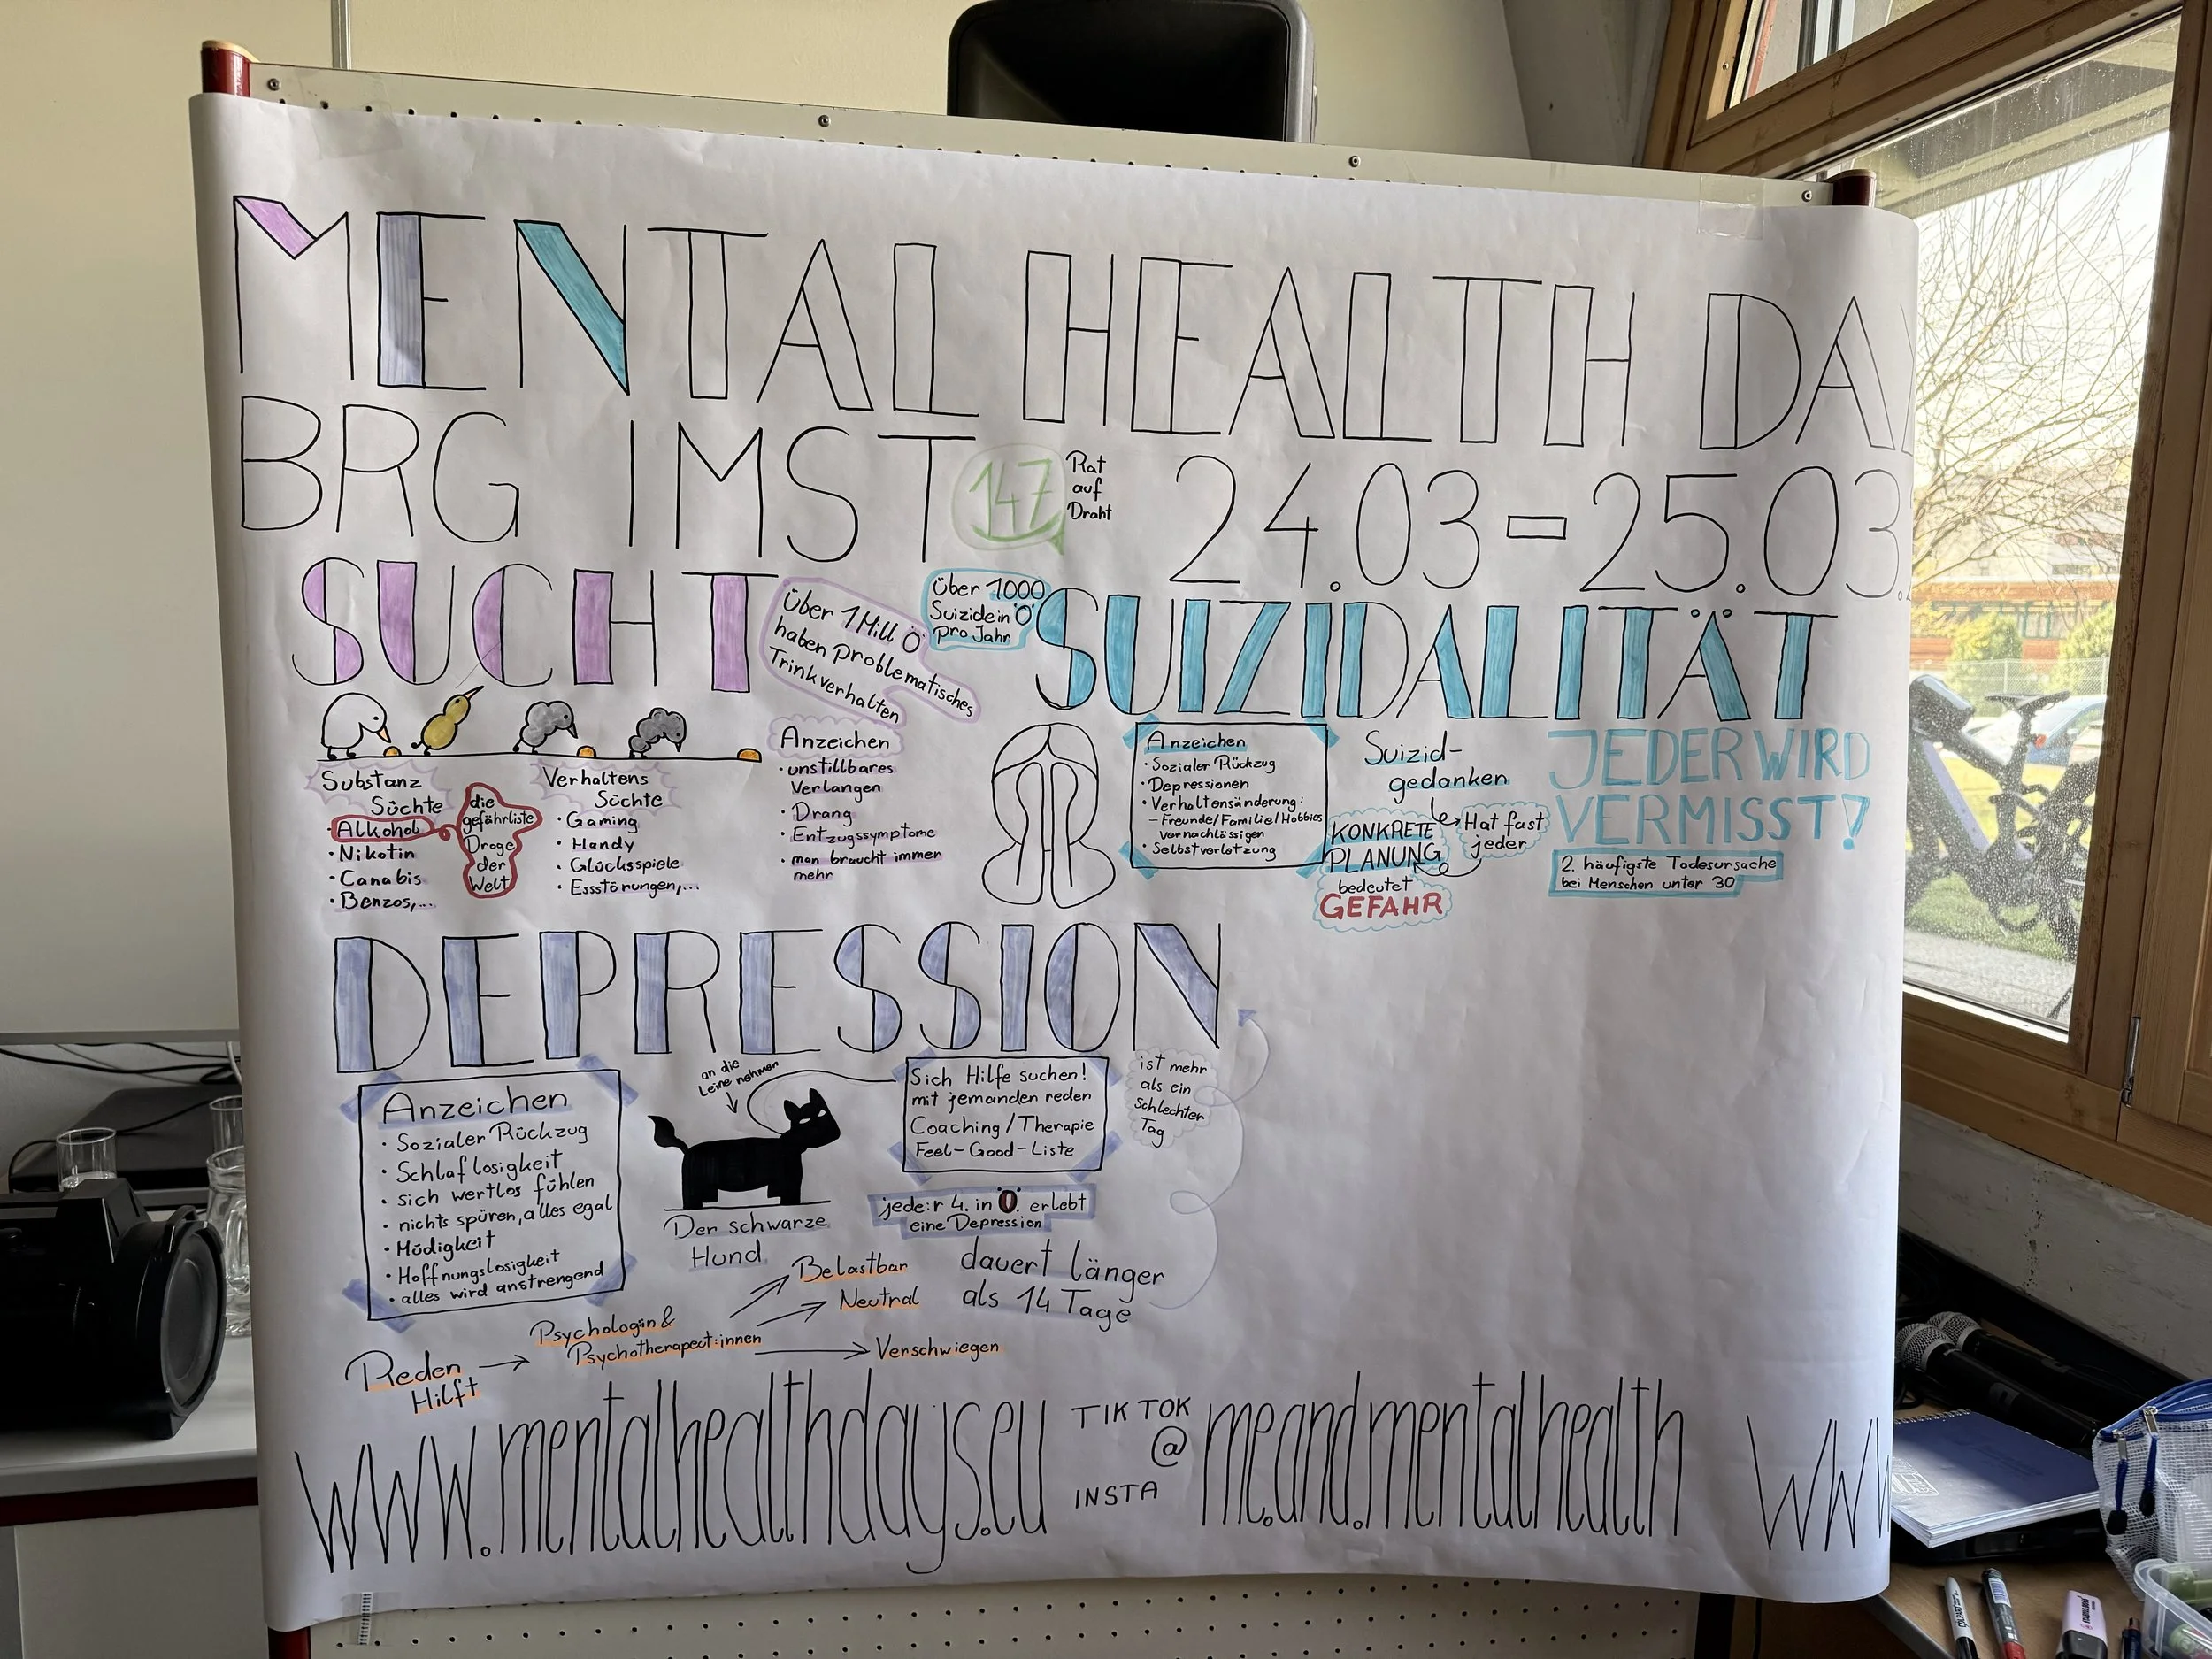 MENTAL HEALTH DA
BRG IMST
147
Rat
auf
Draht
24.03-25.03.
SUCHT
Über 1 Mill Ö
haben problematisches
Trinkverhalten
Über 1000
Suizide in Ö
pro Jahr
SUIZIDALITÄT
Substanz
Süchte
· Alkohol
· Nikotin
· Canabis
· Benzos,...
die
gefährliste
Droge
der
Welt
Verhaltens
Süchte
· Gaming
· Handy
· Glücksspiele
· Essstörungen,...
Anzeichen
· unstillbares
Verlangen
· Drang
· Entzugssymptome
· man braucht immer
mehr
Anzeichen
· Sozialer Rückzug
· Depressionen
· Verhaltensänderung:
– Freunde/Familie/Hobbies
vernachlässigen
· Selbstverletzung
Suizid-
gedanken
Hat fast
jeder
KONKRETE
PLANUNG
bedeutet
GEFAHR
JEDER WIRD
VERMISST!
2. häufigste Todesursache
bei Menschen unter 30
DEPRESSION
Anzeichen
· Sozialer Rückzug
· Schlaflosigkeit
· sich wertlos fühlen
· nichts spüren, alles egal
· Müdigkeit
· Hoffnungslosigkeit
· alles wird anstrengend
an die
Leine nehmen
Der schwarze
Hund
Sich Hilfe suchen!
mit jemanden reden
Coaching/Therapie
Feel-Good-Liste
ist mehr
als ein
schlechter
Tag
jede:r 4. in Ö. erlebt
eine Depression
dauert länger
als 14 Tage
Reden
Hilft
Psychologin &
Psychotherapeut:innen
Belastbar
Neutral
Verschwiegen
www.mentalhealthdays.eu
TIKTOK
@
INSTA
me.and.mentalhealth
WW